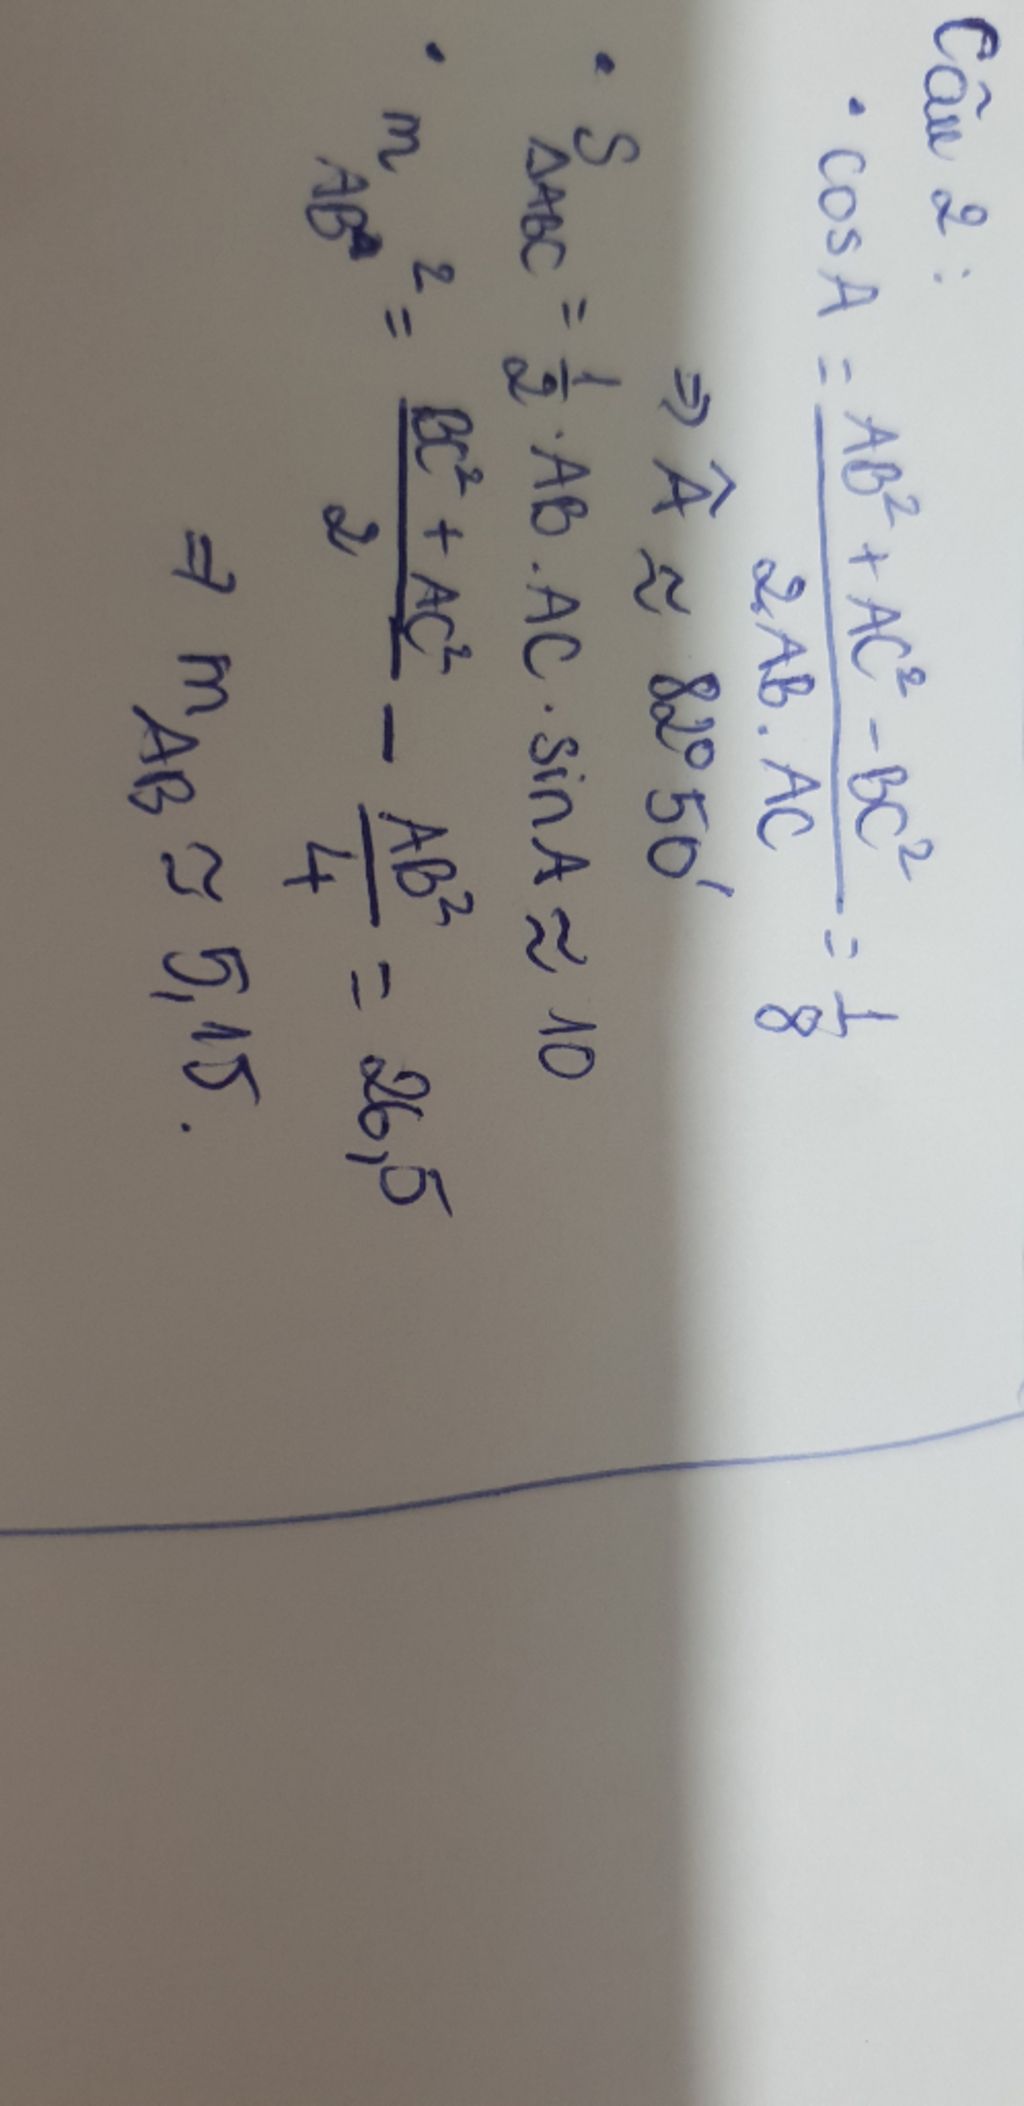 Câu 2 :
• cos A = (AB² + AC² - BC²) / (2.AB.AC) = 1/8
⇒ Â ≈ 82°50'
• S ΔABC = 1/2 . AB . AC . sin A ≈ 10
• m AB² = (BC² + AC²) / 2 - AB² / 4 = 26,5
⇒ m AB ≃ 5,15.